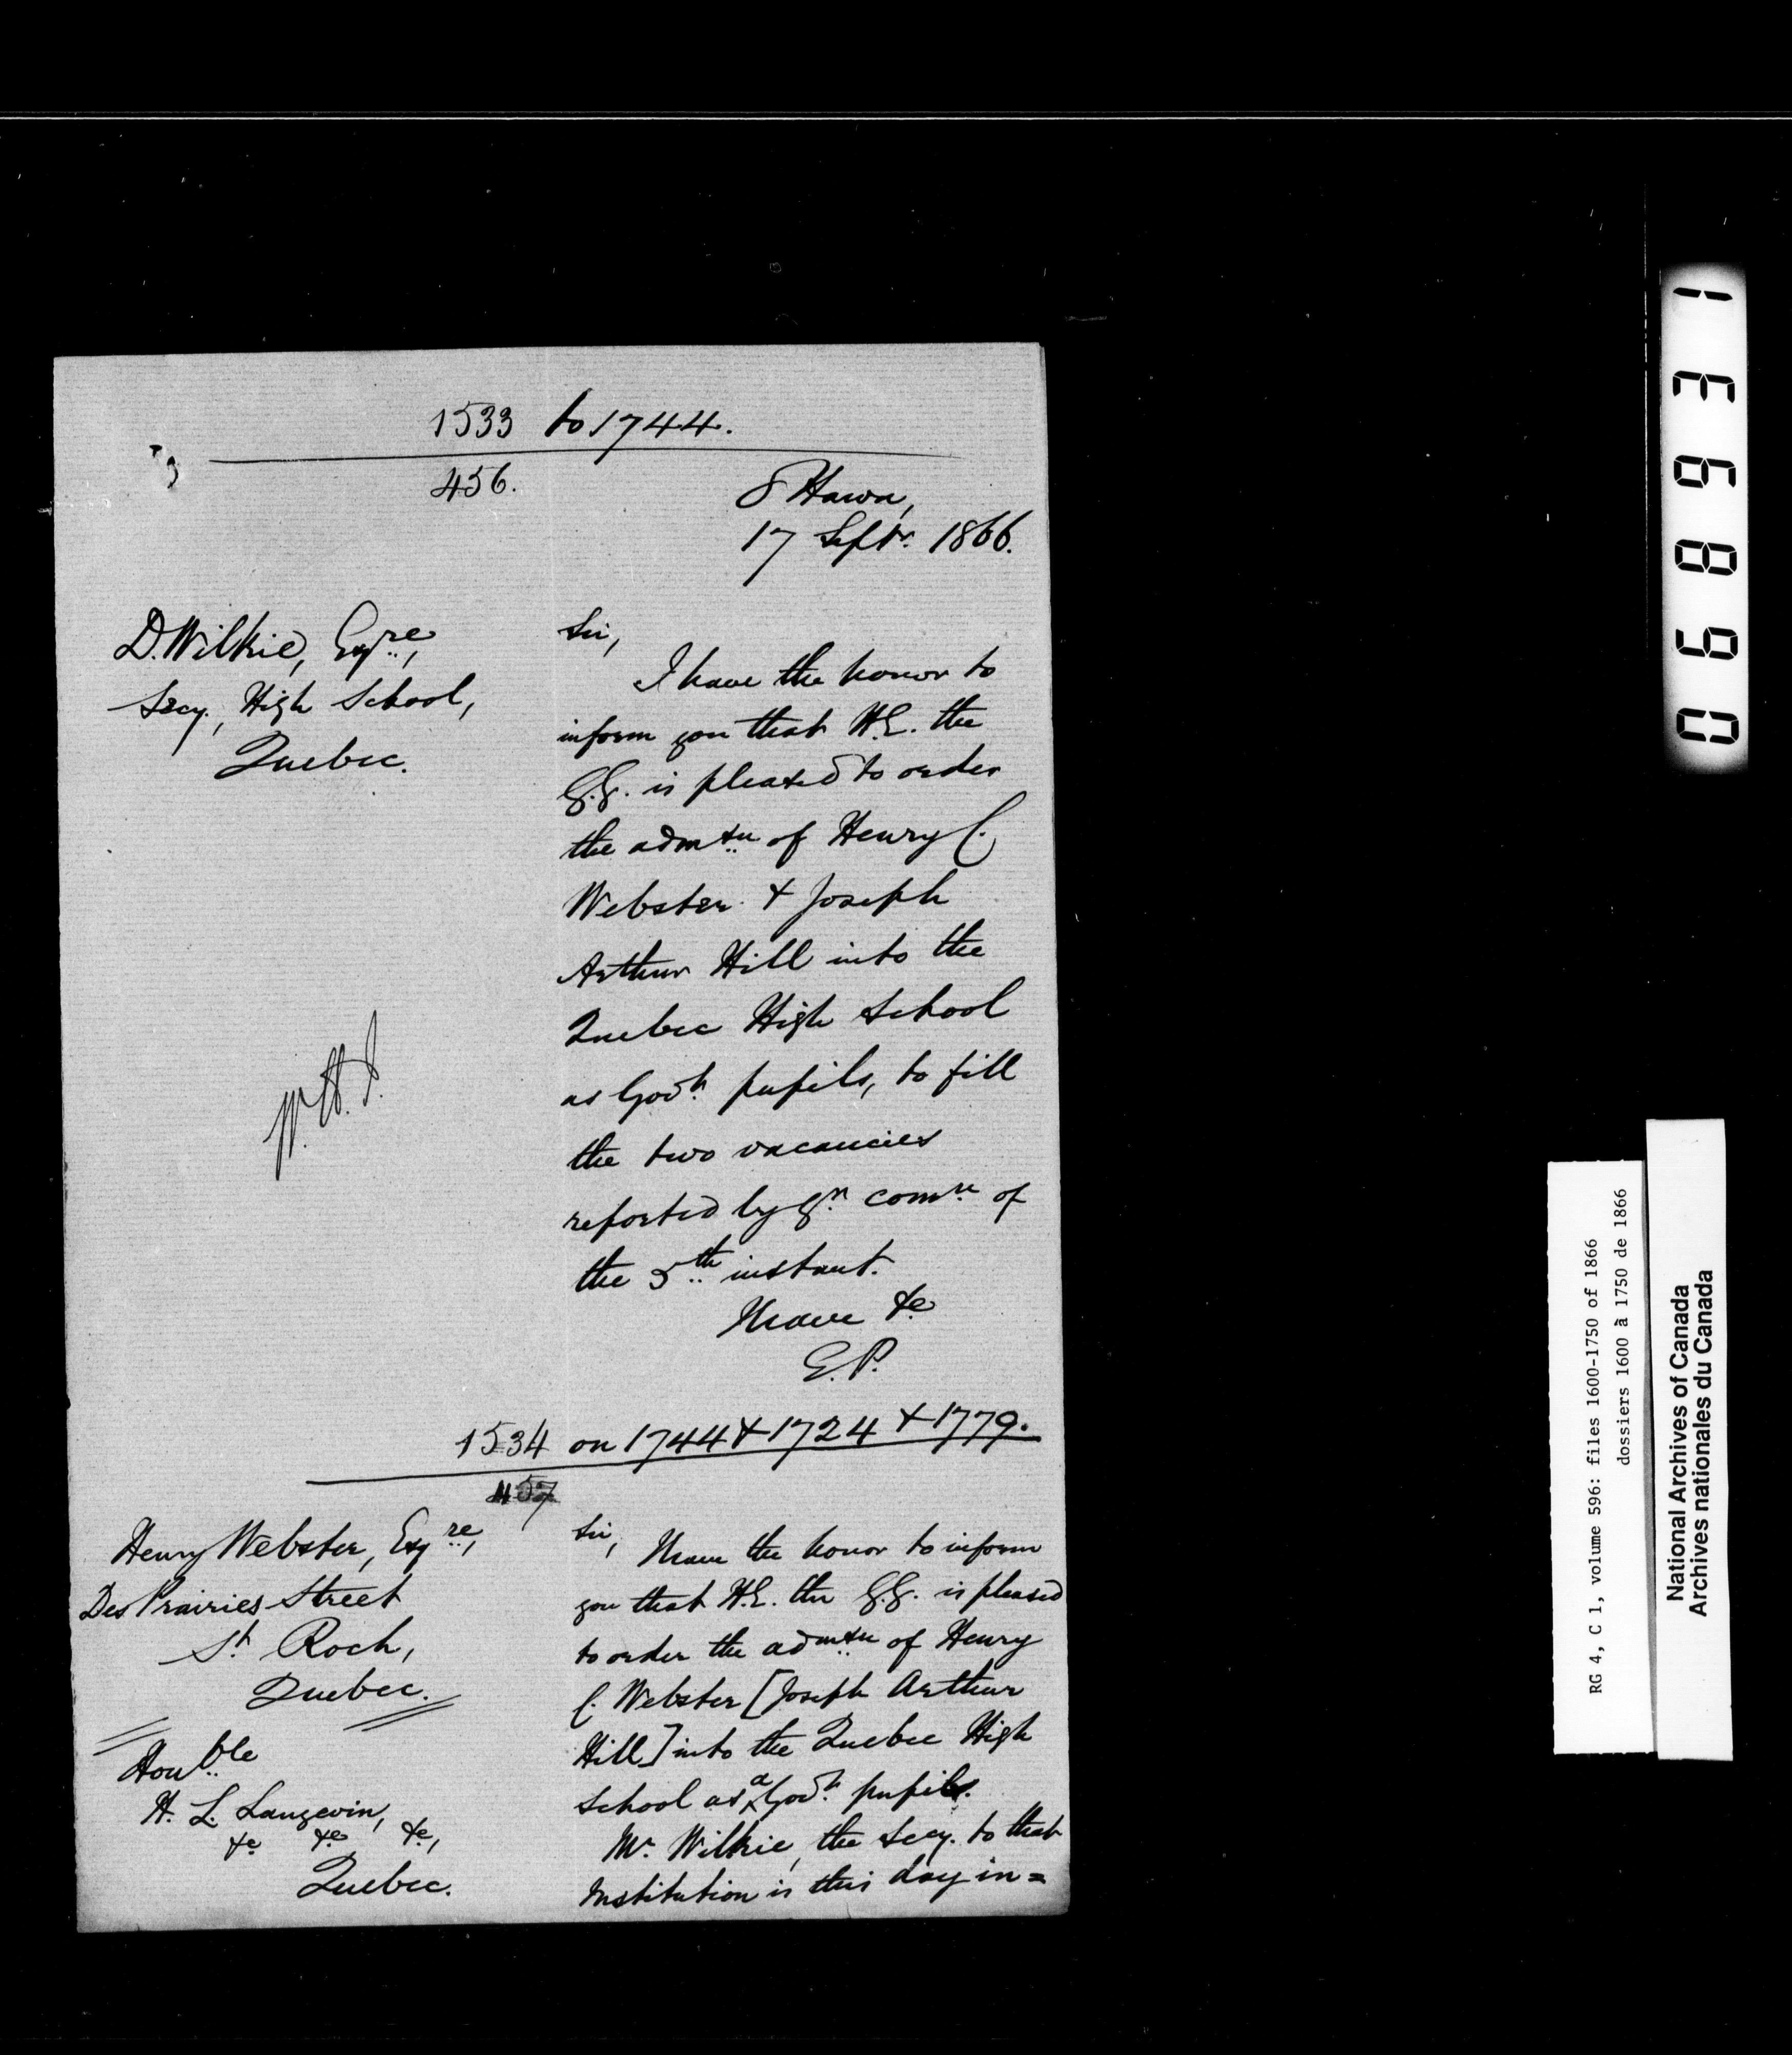 1533 to 1744.
456.
Ottawa,
17 Septr. 1866.
D. Wilkie, Esqre.,
Secy., High School,
Quebec.
Sir,
I have the honor to
inform you that H.E. the
G.G. is pleased to order
the admtn of Henry C.
Webster & Joseph
Arthur Hill into the
Quebec High School
as Govt. pupils, to fill
the two vacancies
reported by yr. comn. of
the 5th instant.
I have &c
E.P.
W.H.J.
1534 on 1744 & 1724 & 1779.
457
Henry Webster, Esqre.,
Des Prairies Street
St. Roch,
Quebec.
Honble
H. L. Langevin,
&c &c &c,
Quebec.
Sir,
I have the honor to inform
you that H.E. the G.G. is pleased
to order the admtn of Henry
C. Webster [Joseph Arthur
Hill] into the Quebec High
School as a Govt. pupil.
Mr. Wilkie, the Secy. to that
Institution is this day in=
068931
RG 4, C 1, volume 596: files 1600-1750 of 1866
dossiers 1600 à 1750 de 1866
National Archives of Canada
Archives nationales du Canada